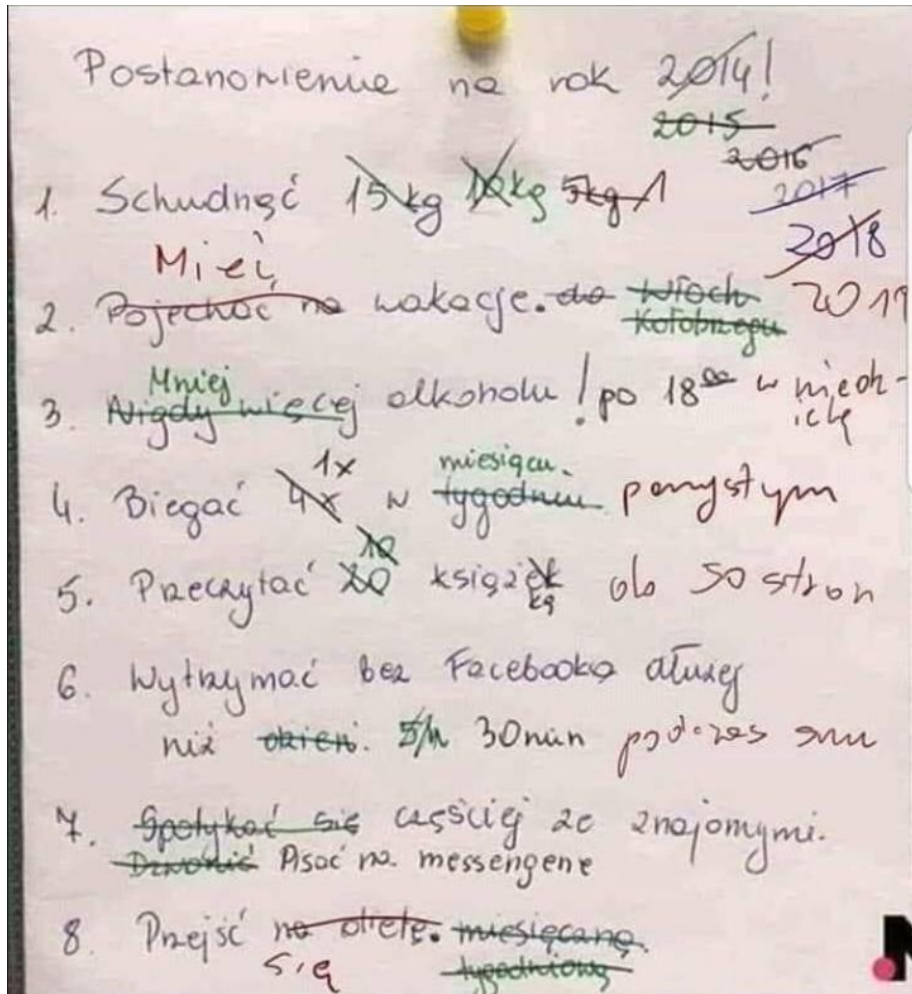 Postanowienie na rok 2014!
2015
2016
1. Schudnąć 15kg 10kg 5kg 1
2017
2018
Mieć
2. Pojechać na wakacje. do Włoch 2019
Kołobrzegu
Mniej
3. Nigdy więcej alkoholu! po 18⁰⁰ w niedz-
ielę
1x miesiącu.
4. Biegać 4x w tygodniu parzystym
10
5. Przeczytać 20 książek do 50 stron
kę
6. Wytrzymać bez Facebooka dłużej
niż dzień. 5h 30min podczas snu
7. Spotykać się częściej ze znajomymi.
Dzwonić Pisać na messengerze
8. Przejść na dietę. miesięczną.
się tygodniową